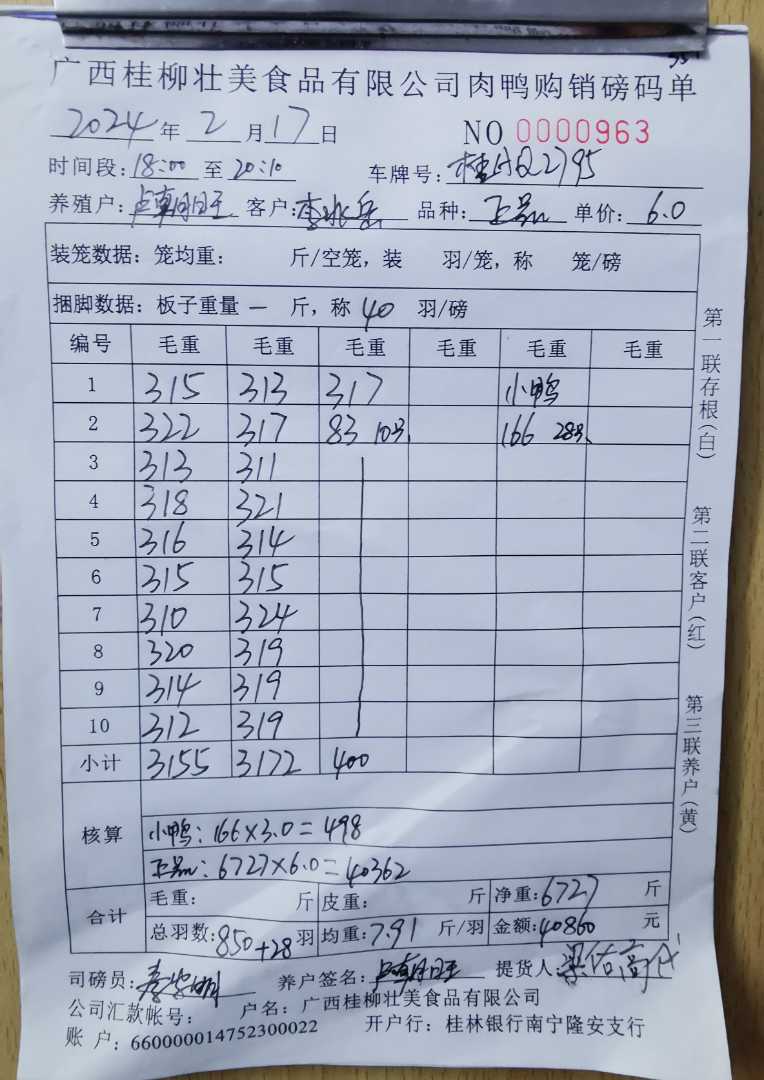 广西桂柳壮美食品有限公司肉鸭购销磅码单
2024年2月17日 NO 0000963
时间段:18:00至20:10 车牌号:2795
养殖户: 客户:李 品种:正品 单价:6.0
装笼数据:笼均重: 斤/空笼,装 羽/笼,称 笼/磅
捆脚数据:板子重量 一 斤,称 40 羽/磅
编号 毛重 毛重 毛重 毛重 毛重 毛重
1 315 313 317 小鸭
2 322 317 83 10只 166 28只
3 313 311
4 318 321
5 316 314
6 315 315
7 310 324
8 320 319
9 314 319
10 312 319
小计 3155 3172 400
核算
小鸭:166×3.0=498
正品:6727×6.0=40362
合计 毛重: 斤 皮重: 斤 净重:6727 斤
总羽数:850+28羽 均重:7.91 斤/羽 金额:40860 元
司磅员: 养户签名: 提货人:
公司汇款帐号: 户名:广西桂柳壮美食品有限公司
账 户:660000014752300022 开户行:桂林银行南宁隆安支行
第一联存根(白)
第二联客户(红)
第三联养户(黄)